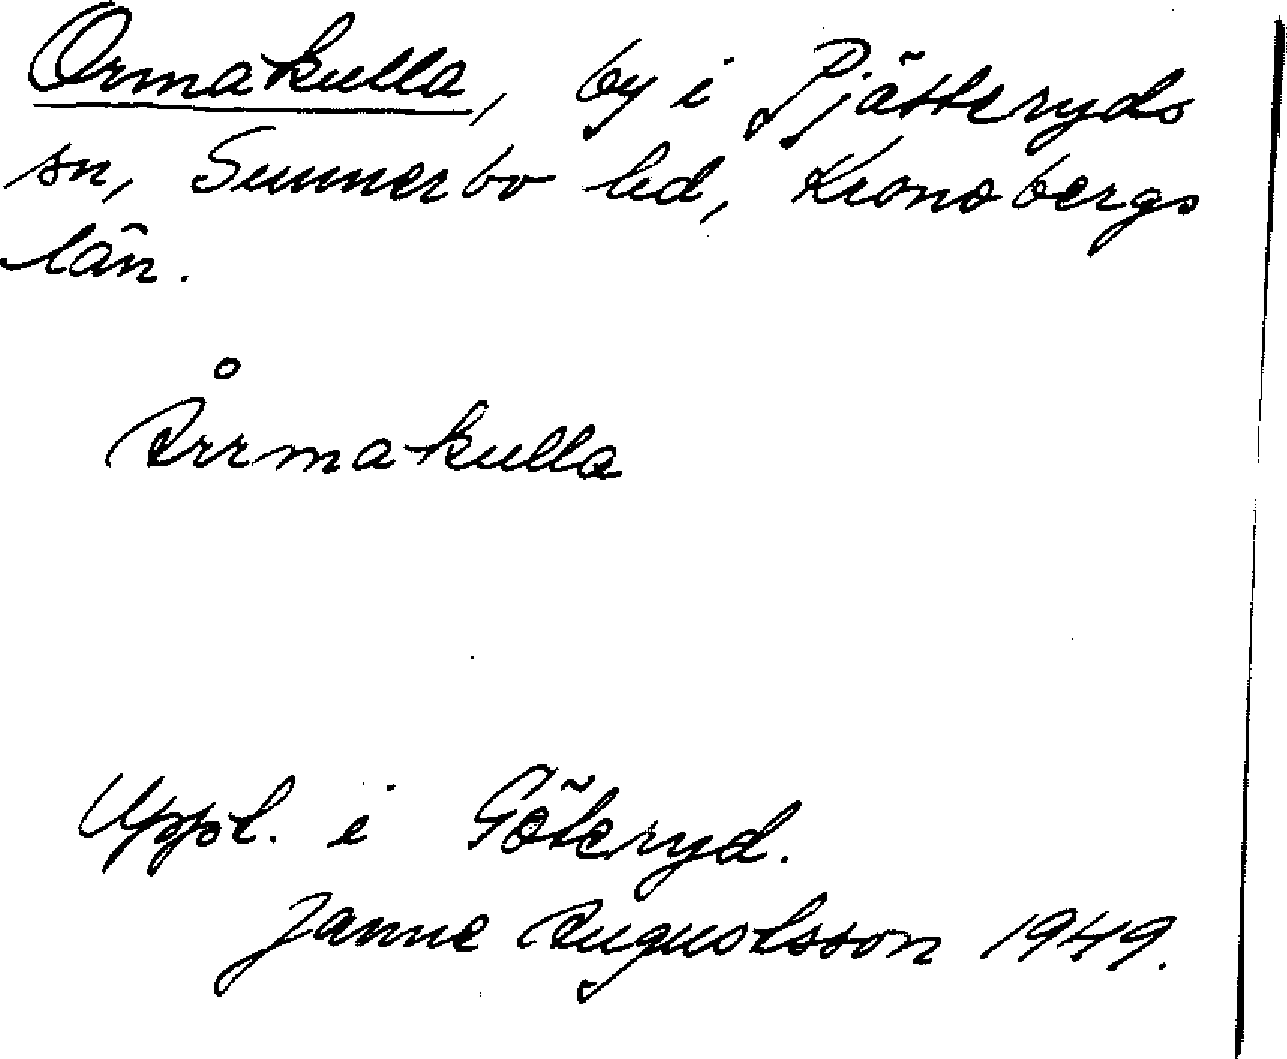 Ormakulla, by i Pjätteryds
sn, Sunnerbo hd, Kronobergs
län.
Årrmakulla
Uppt. i Göteryd.
Janne Augustsson 1949.